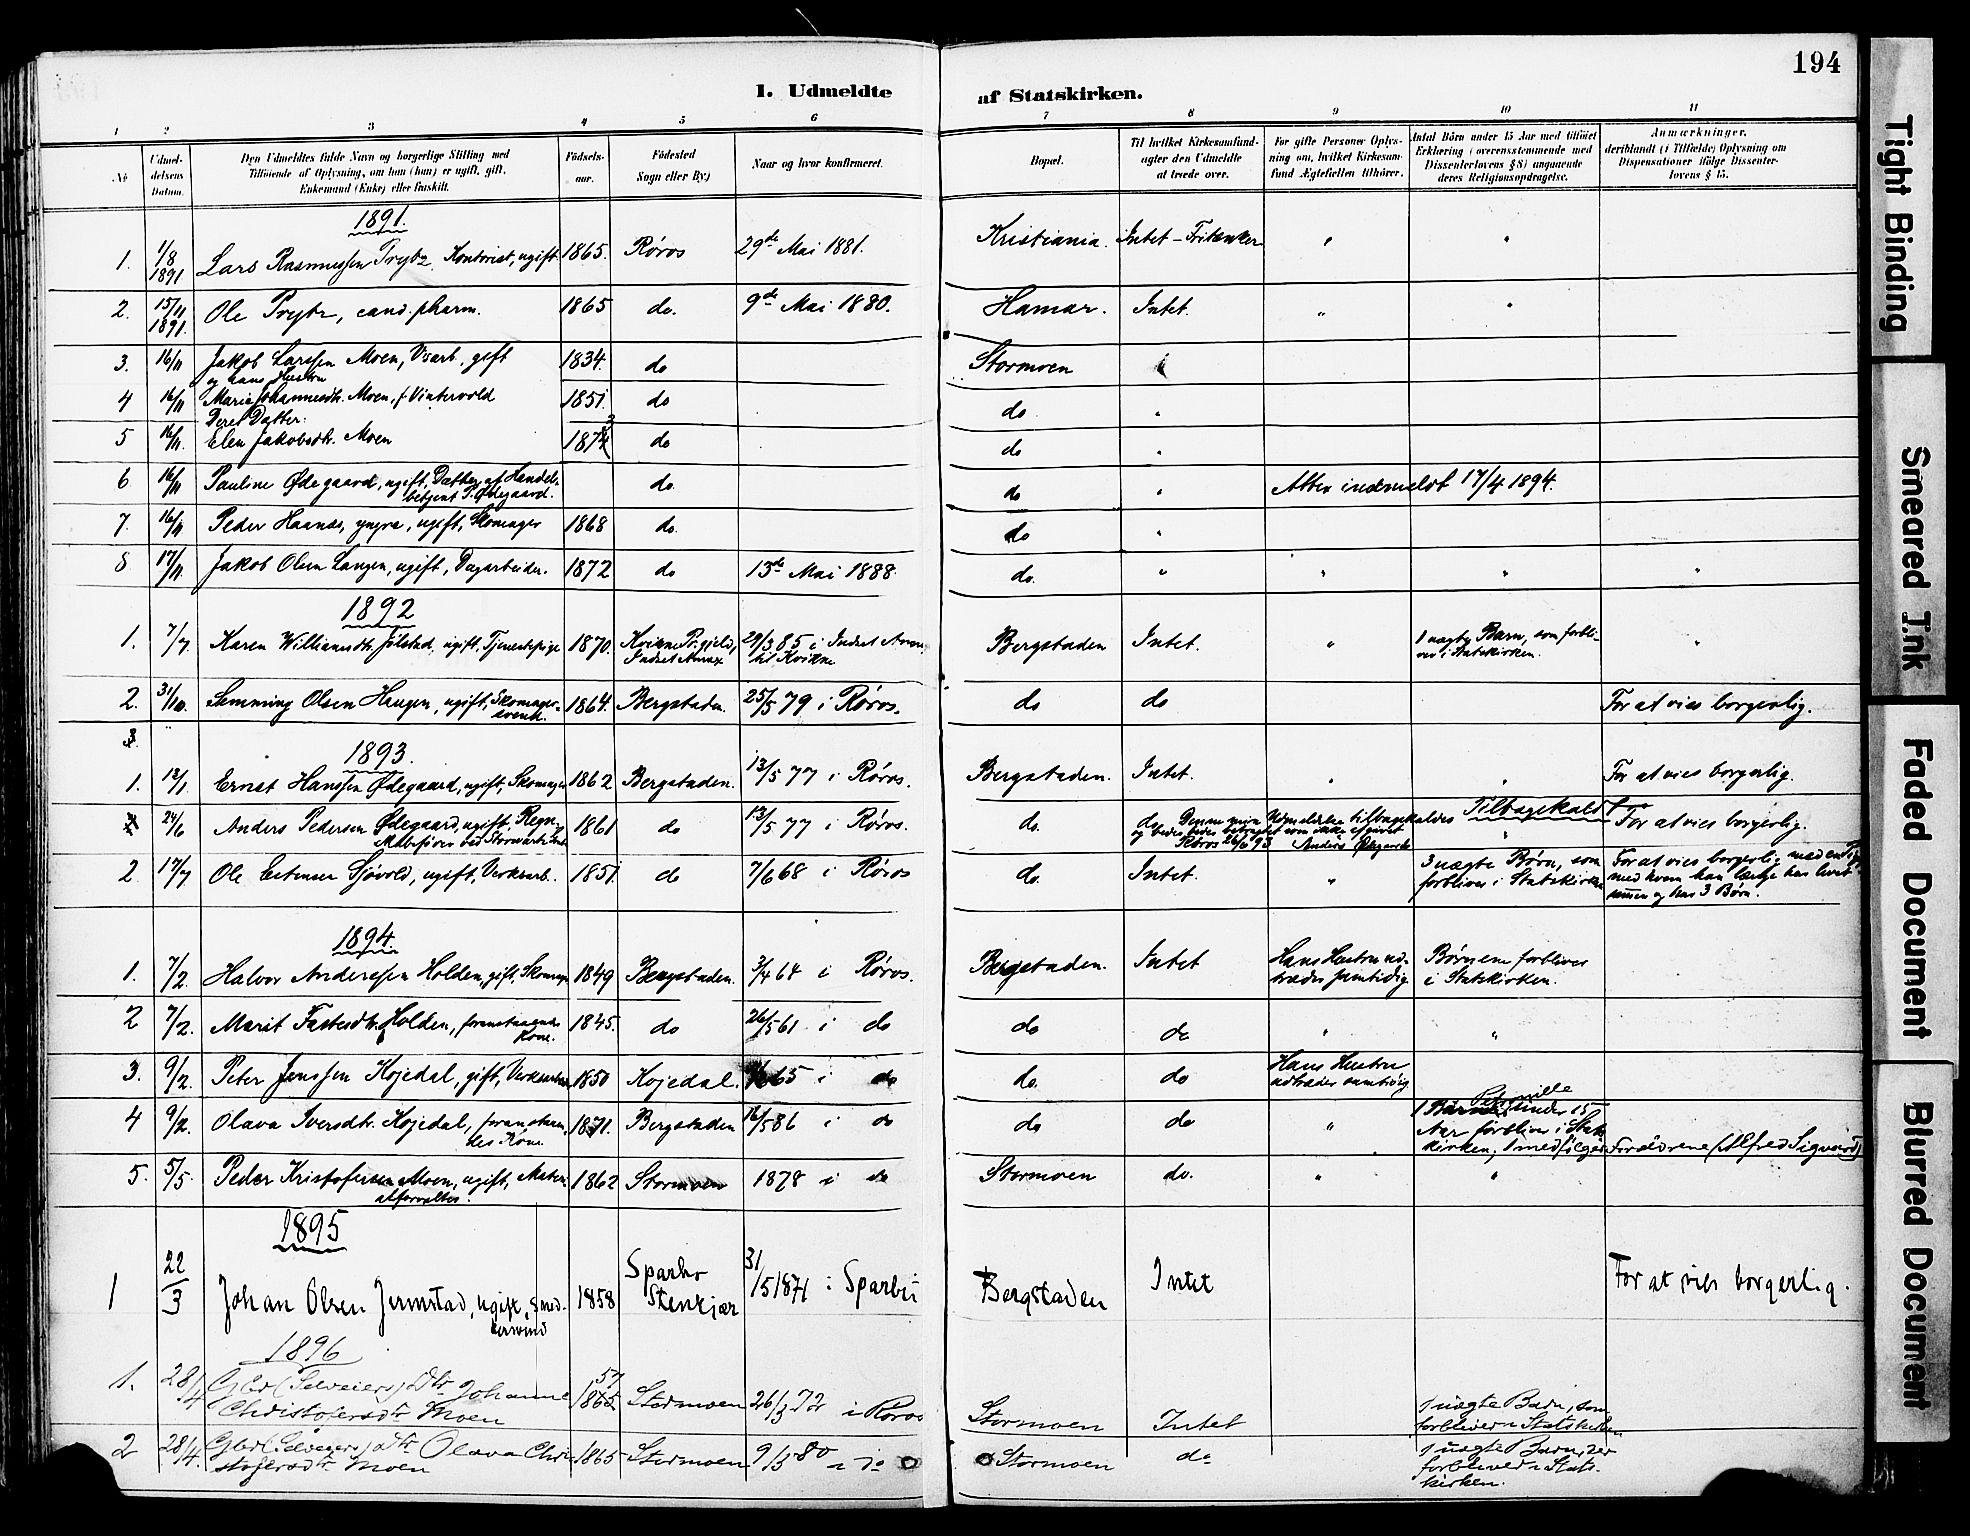 194
1. Udmeldte af Statskirken.
1 2 3 4 5 6 7 8 9 10 11
No
Udmel-
delsens
Datum.
Den Udmeldtes fulde Navn og borgerlige Stilling med
Tilføiende af Oplysning, om han (hun) er ugift, gift,
Enkemand (Enke) eller fraskilt.
Fødsels-
aar.
Fødested
Sogn eller By)
Naar og hvor konfirmeret.
Bopæl.
Til hvilket Kirkesamfund-
agter den Udmeldte
at træde over.
For gifte Personer Oplys-
ning om, hvilket Kirkesam-
fund Ægtefællen tilhører.
Antal Børn under 15 Aar med tilføiet
Erklæring (overensstemmende med
Dissenterlovens § 8) angaaende
deres Religionsopdragelse.
Anmærkninger,
deriblandt (i Tilfælde) Oplysning om
Dispensationer ifølge Dissenter-
lovens § 15.
1891.
1. 1/8 1891 Lars Rasmussen Prytz Kontorist, ugift 1865. Røros 29de Mai 1881. Kristiania. Intet - Fritænker " "
2. 15/11 1891. Ole Prytz, cand. pharm. 1865 do. 9de Mai 1880. Hamar. Intet. " "
3. 16/11 Jakob Larssen Moen, gift 1834. do Stormoen "
og hans Hustru
4 16/11 Marie Johannesdtr. Moen, f. Vintervold 1851. do do. "
Deres Datter:
5 16/11 Elen Jakobsdtr. Moen 1873 do do "
6 16/11 Pauline Ødegaard, ugift, Datter af Handels-
betjent P. Ødegaard. do. do " Atter indmeldt 17/4 1894.
7. 16/11 Peder Haanæs, yngre, ugift, Skomager 1868 do. do "
8 17/11. Jakob Olsen Langen, ugift, Dagarbeider. 1872 do 13de Mai 1888. do. " " " "
1892
1. 7/7 Karen Williamsdtr. Jølstad, ugift, Tjenestepige 1870. Kvikne Pr.gjeld,
Indset Annex 29/3 85 i Indset Annex
til Kvikne Bergstaden Intet. " 1 uægte Barn, som forbli-
ver i Statskirken. "
2. 31/10. Semming Olsen Haugen, ugift, Skomager-
svend. 1864. Bergstaden. 25/5 79 i Røros. do do For at vies borgerlig.
3.
1893.
1. 12/1 Ernst Hanssen Ødegaard, ugift, Skomager 1862 Bergstaden. 13/5 77 i Røros. Bergstaden. Intet. " " For at vies borgerlig.
24/6 Anders Pedersen Ødegaard, ugift, Regn- 1861 do 13/5 77 i Røros. do. do Denne min Udmeldelse tilbagekaldes Tilbagekaldt For at vies borgerlig.
og bedes betragtet som ikke afgivet
Røros 26/6 93 Anders Ødegaard
2. 17/7 Ole Estensen Sjøvold, ugift, Verksarb. 1851. do 7/6 68 i Røros do. Intet. " 3 uægte Børn, som
forbliver i Statskirken For at vies borgerlig med en
med hvem han længe har levet
sammen og har 3 Børn.
1894.
1. 7/2. Halvor Anderssen Holden, gift, Skomager 1849 Bergstaden. 3/4 64 i Røros. Bergstaden. Intet Hans Hustru ud-
træder samtidig Børnene forbliver
i Statskirken.
2 7/2. Marit Fastesdtr. Holden, foranstaaendes
Kone. 1845. do 26/5 61 i do do do " "
3. 9/2. Peter Jenssen Kojedal, gift, Verksarbeider 1850 Kojedal. 65 i do do. do Hans Hustru
udtræder samtidig
4 9/2. Olava Iversdtr. Kojedal, foranstaaen-
des Kone. 1871. Bergstaden 16/5 86 i do do do " Pernille
1 Barn under 15
Aar forbliver i Stats
kirken, 1 medfølger Forældrene (Alfred Sigvard)
5. 5/5. Peder Kristofersen Moen, ugift, Materi-
alforvalter. 1862 Stormoen 1878 i do Stormoen do. " "
1895
1 22/3 Johan Olsen Jermstad, ugift, Smed-
svend 1858 Sparbo
Stenkjær 31/5 1871 i Sparbu Bergstaden Intet For at vies borgerlig.
1896
1. 28/4 Gbr (Selveiers) Dtr Johanne
Christofersdtr Moen 57
1865 Stormoen 26/3 72 i Røros Stormoen Intet 1 uægte Barn, som
forbliver i Statskirken
2 28/4. Gbr (Selveiers) Dtr Olava Chri-
stofersdtr Moen 1865 Stormoen 9/5 80 i do Stormoen do 1 uægte Barn, der
forbliver i Stats-
kirken.
Tight Binding
Smeared Ink
Faded Document
Blurred Document